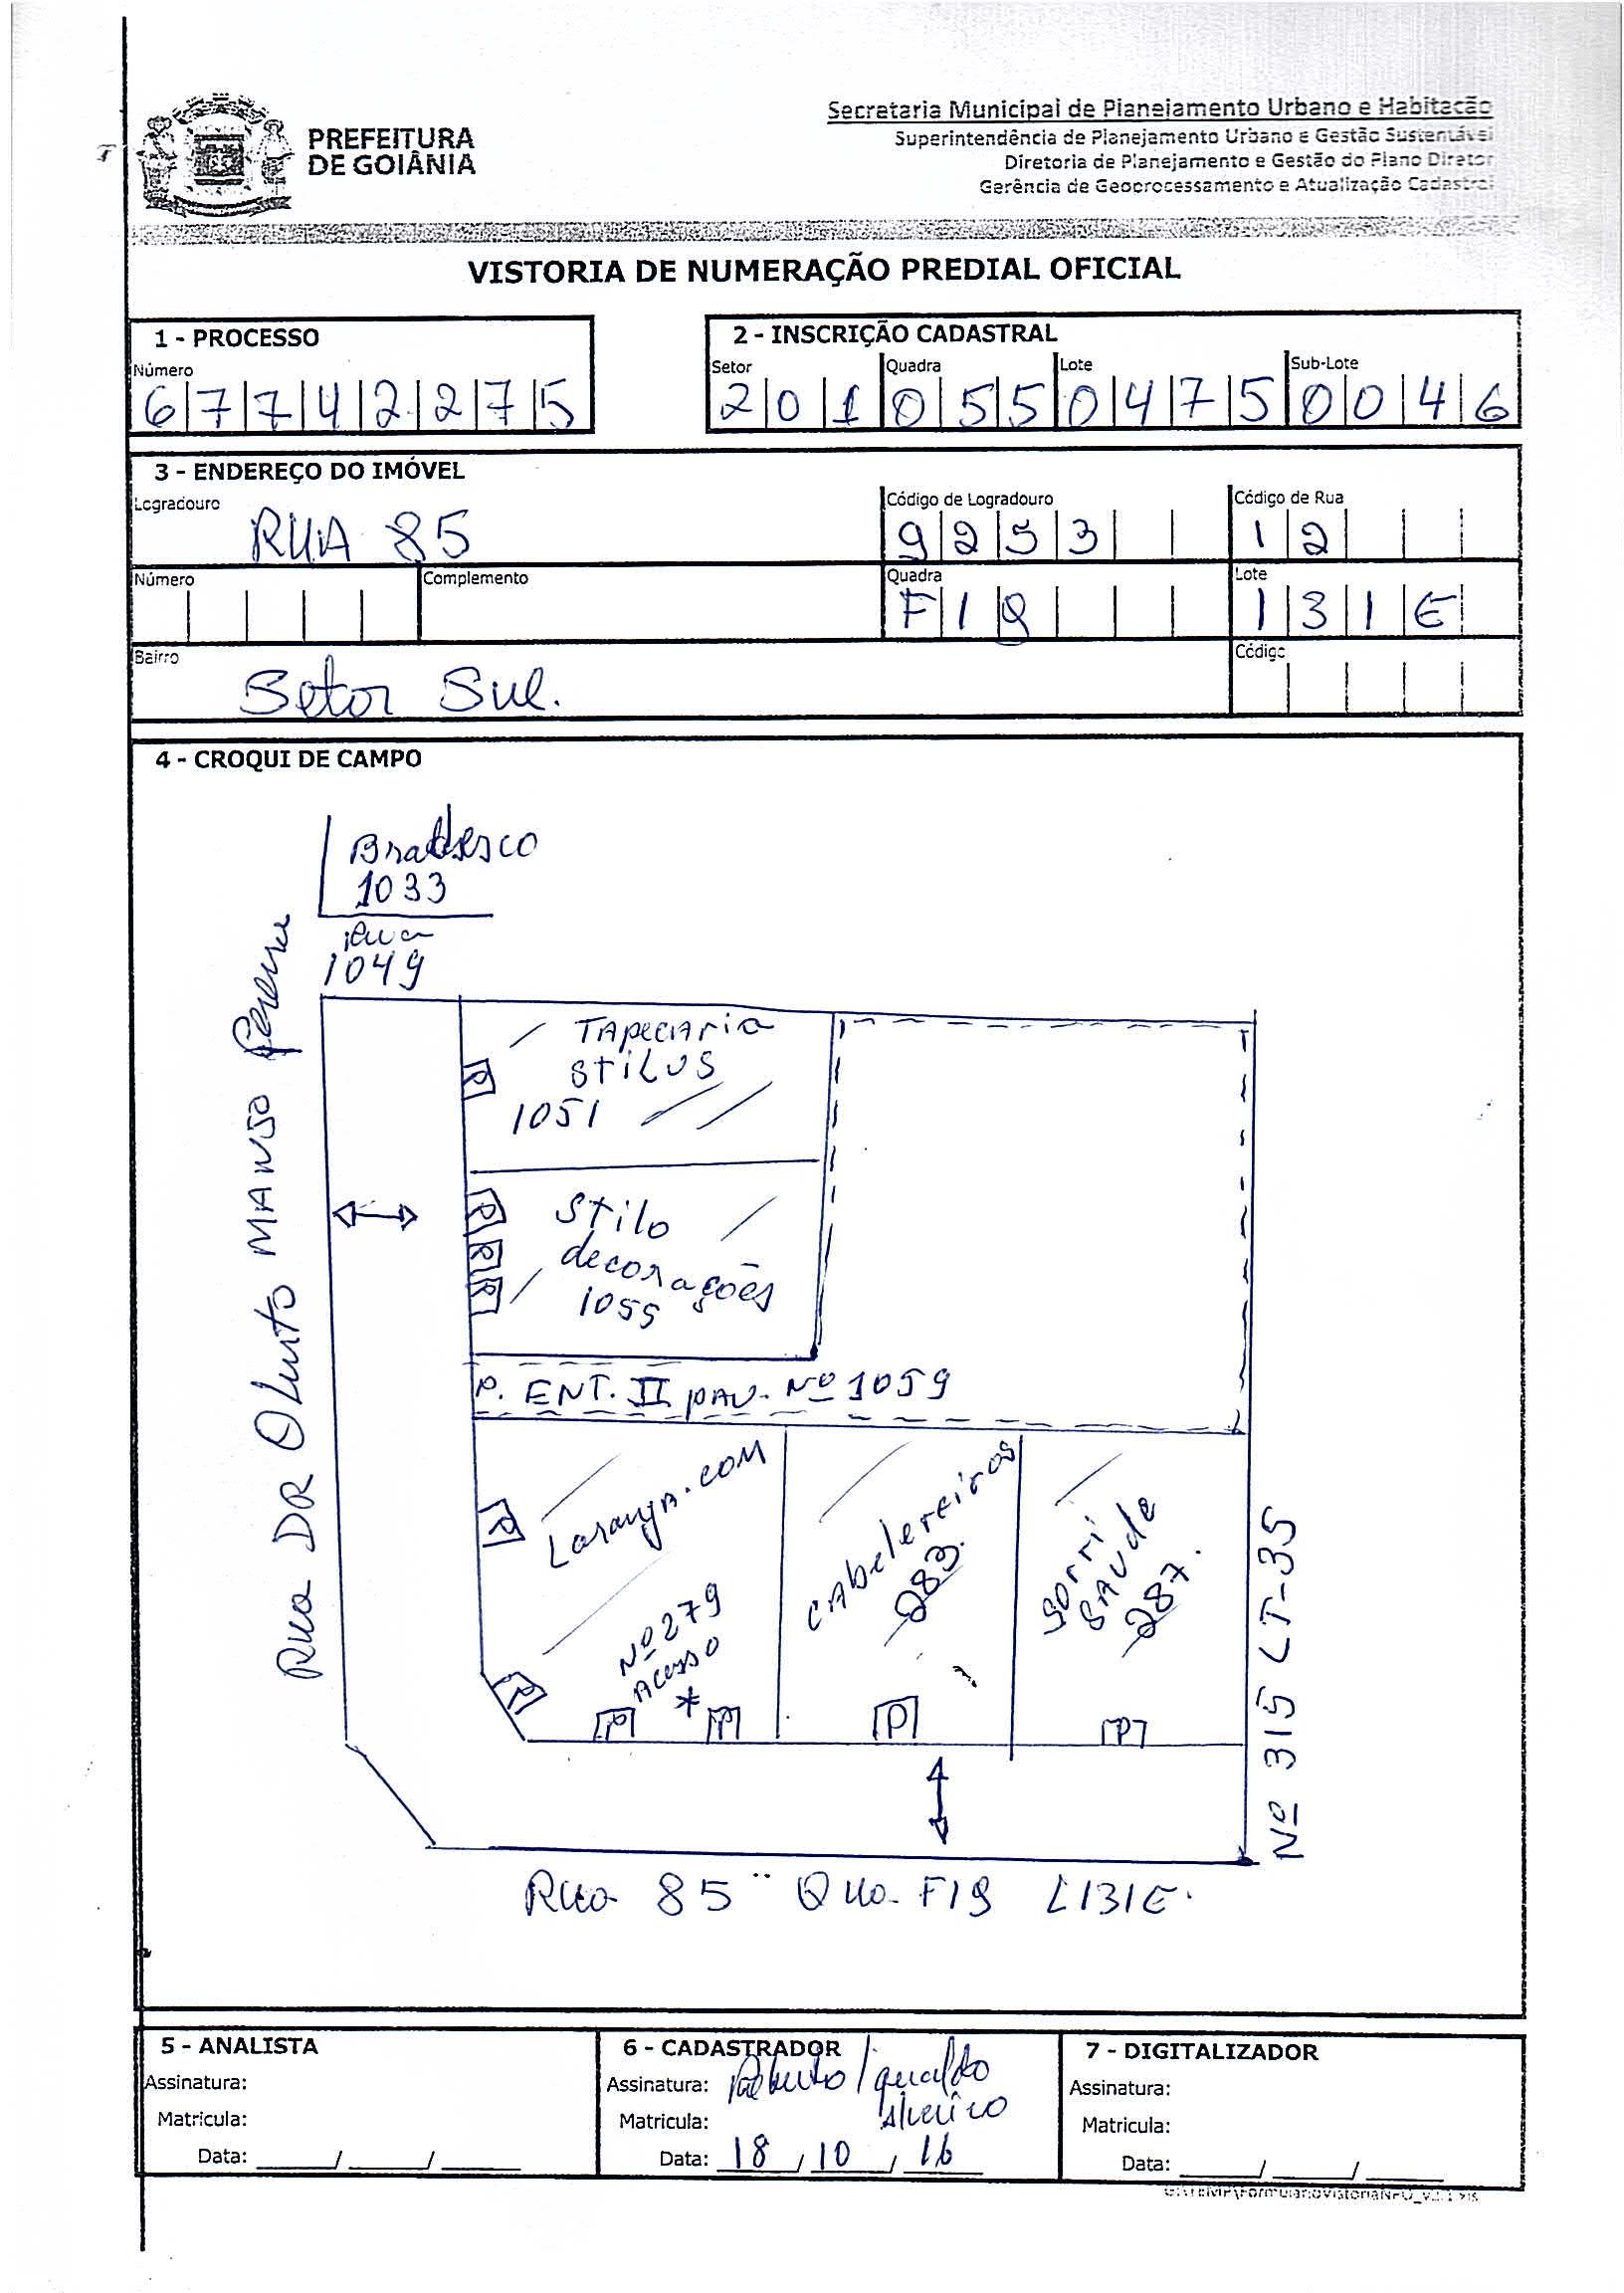 PREFEITURA
DE GOIÂNIA
Secretaria Municipal de Planejamento Urbano e Habitação
Superintendência de Planejamento Urbano e Gestão Sustentável
Diretoria de Planejamento e Gestão do Plano Diretor
Gerência de Geoprocessamento e Atualização Cadastral
VISTORIA DE NUMERAÇÃO PREDIAL OFICIAL
1 - PROCESSO
Número
67742275
2 - INSCRIÇÃO CADASTRAL
Setor Quadra Lote Sub-Lote
201 055 0475 0046
3 - ENDEREÇO DO IMÓVEL
Logradouro Código de Logradouro Código de Rua
RUA 85 9253 12
Número Complemento Quadra Lote
F19 131E
Bairro Código
Setor Sul.
4 - CROQUI DE CAMPO
Bradesco
1033
Rua
1049
Rua DR Olinto MANSO Pereira
TApeçAria
STiLUS
1051
P
Stilo
decorações
1055
P
P
P
P. ENT. II PAV. Nº 1059
LaranjA.com
P
Nº 279
Acesso
*
P
P
P
CAbelereiros
283.
P
Sorri
SAUde
287.
P
Nº 315 LT-35
Rua 85 Qua. F19 L131E.
5 - ANALISTA
Assinatura:
Matricula:
Data: ____/____/____
6 - CADASTRADOR
Assinatura:
Matricula:
Data: 18/10/16
7 - DIGITALIZADOR
Assinatura:
Matricula:
Data: ____/____/____